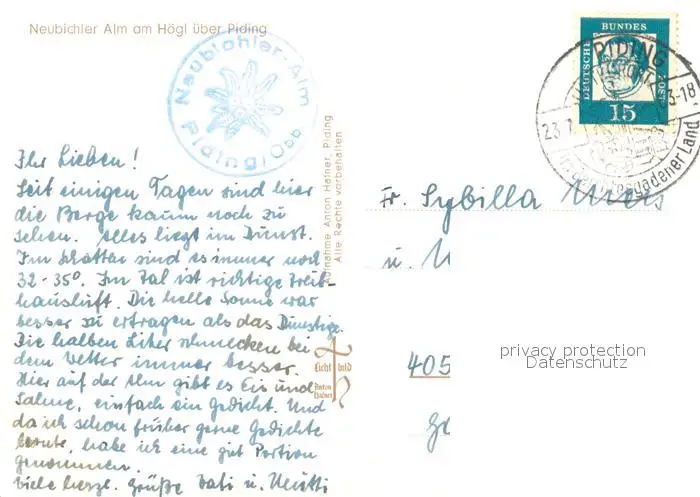 Neubichler Alm am Högl über Piding
Neubichler-Alm
Piding/Obb
Ihr Lieben!
Seit einigen Tagen sind hier
die Berge kaum noch zu
sehen. Alles liegt im Dunst.
Im Schatten sind es immer noch
32-35°. Im Tal ist richtige Treib-
hausluft. Die helle Sonne war
besser zu ertragen als das Dunstige.
Die halben Liter schmecken bei
dem Wetter immer besser.
Hier auf der Alm gibt es Eis und
Sahne, einfach ein Gedicht. Und
da ich schon früher gerne Gedichte
lernte, habe ich eine gut Portion
genommen.
Viele herzl. Grüße u.
Aufnahme Anton Hafner, Piding
Alle Rechte vorbehalten
Licht bild
Anton
Hafner
DEUTSCHE
BUNDES
POST
15
PIDING
23.7.
-18
Berchtesgadener Land
Fr. Sybilla
u.
405
privacy protection
Datenschutz